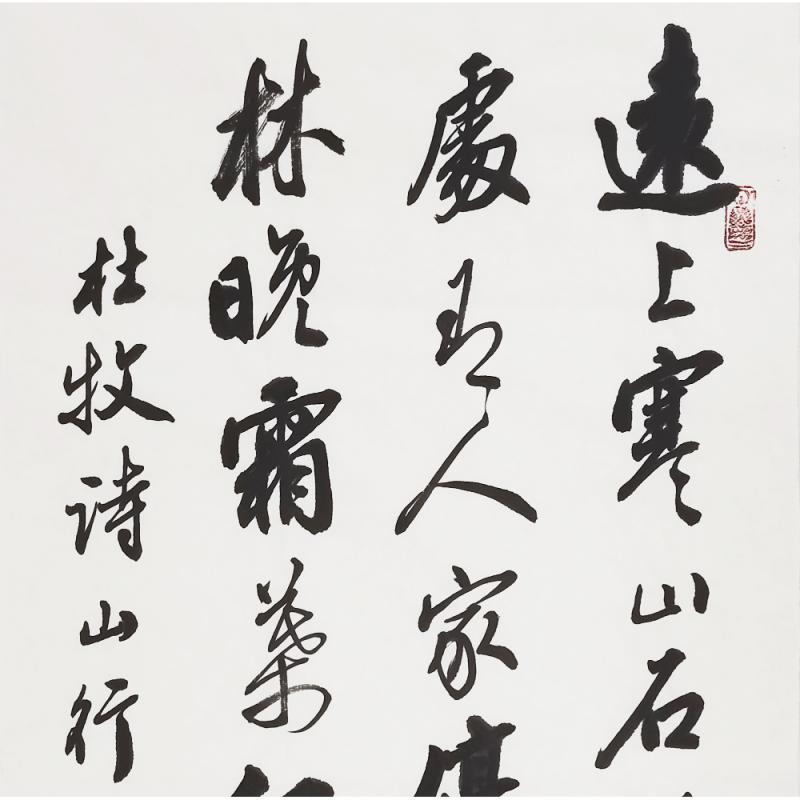 遠上寒山石
處有人家停
林晚霜葉紅
杜牧诗山行